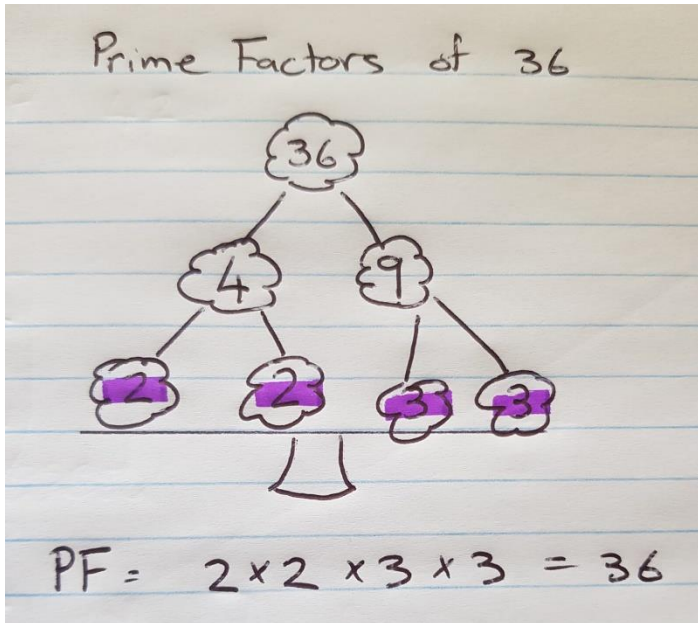 Prime Factors of 36
36
4 9
2 2 3 3
PF = 2 × 2 × 3 × 3 = 36